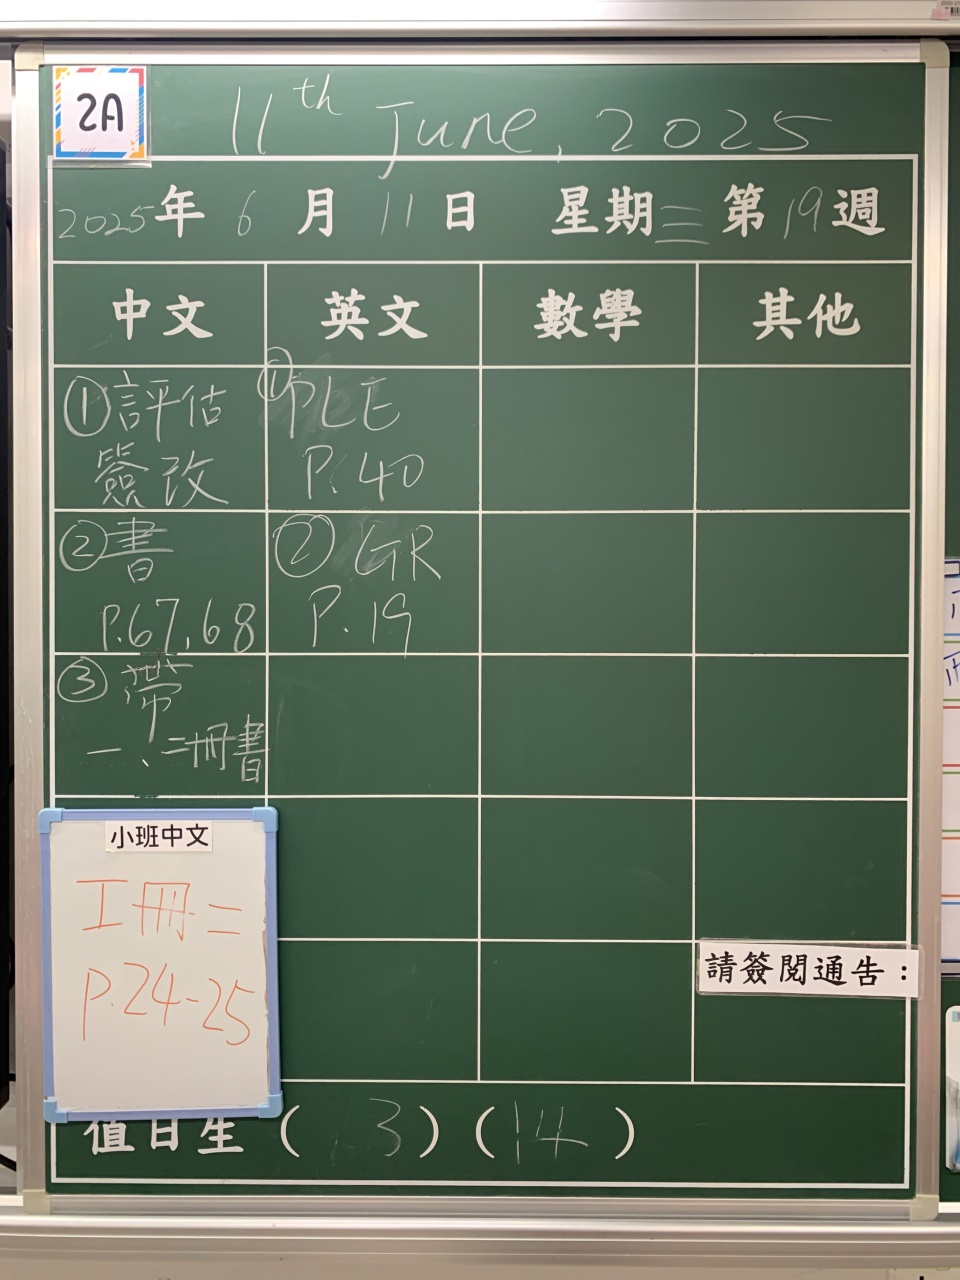 2A
11th June, 2025
2025年 6 月 11 日 星期三 第 19 週
中文 英文 數學 其他
①評估
簽改
②書
P.67,68
③帶
一、二冊書
①PLE
P.40
②GR
P.19
小班中文
工冊二
P.24-25
請簽閱通告：
值日生（13）（14）